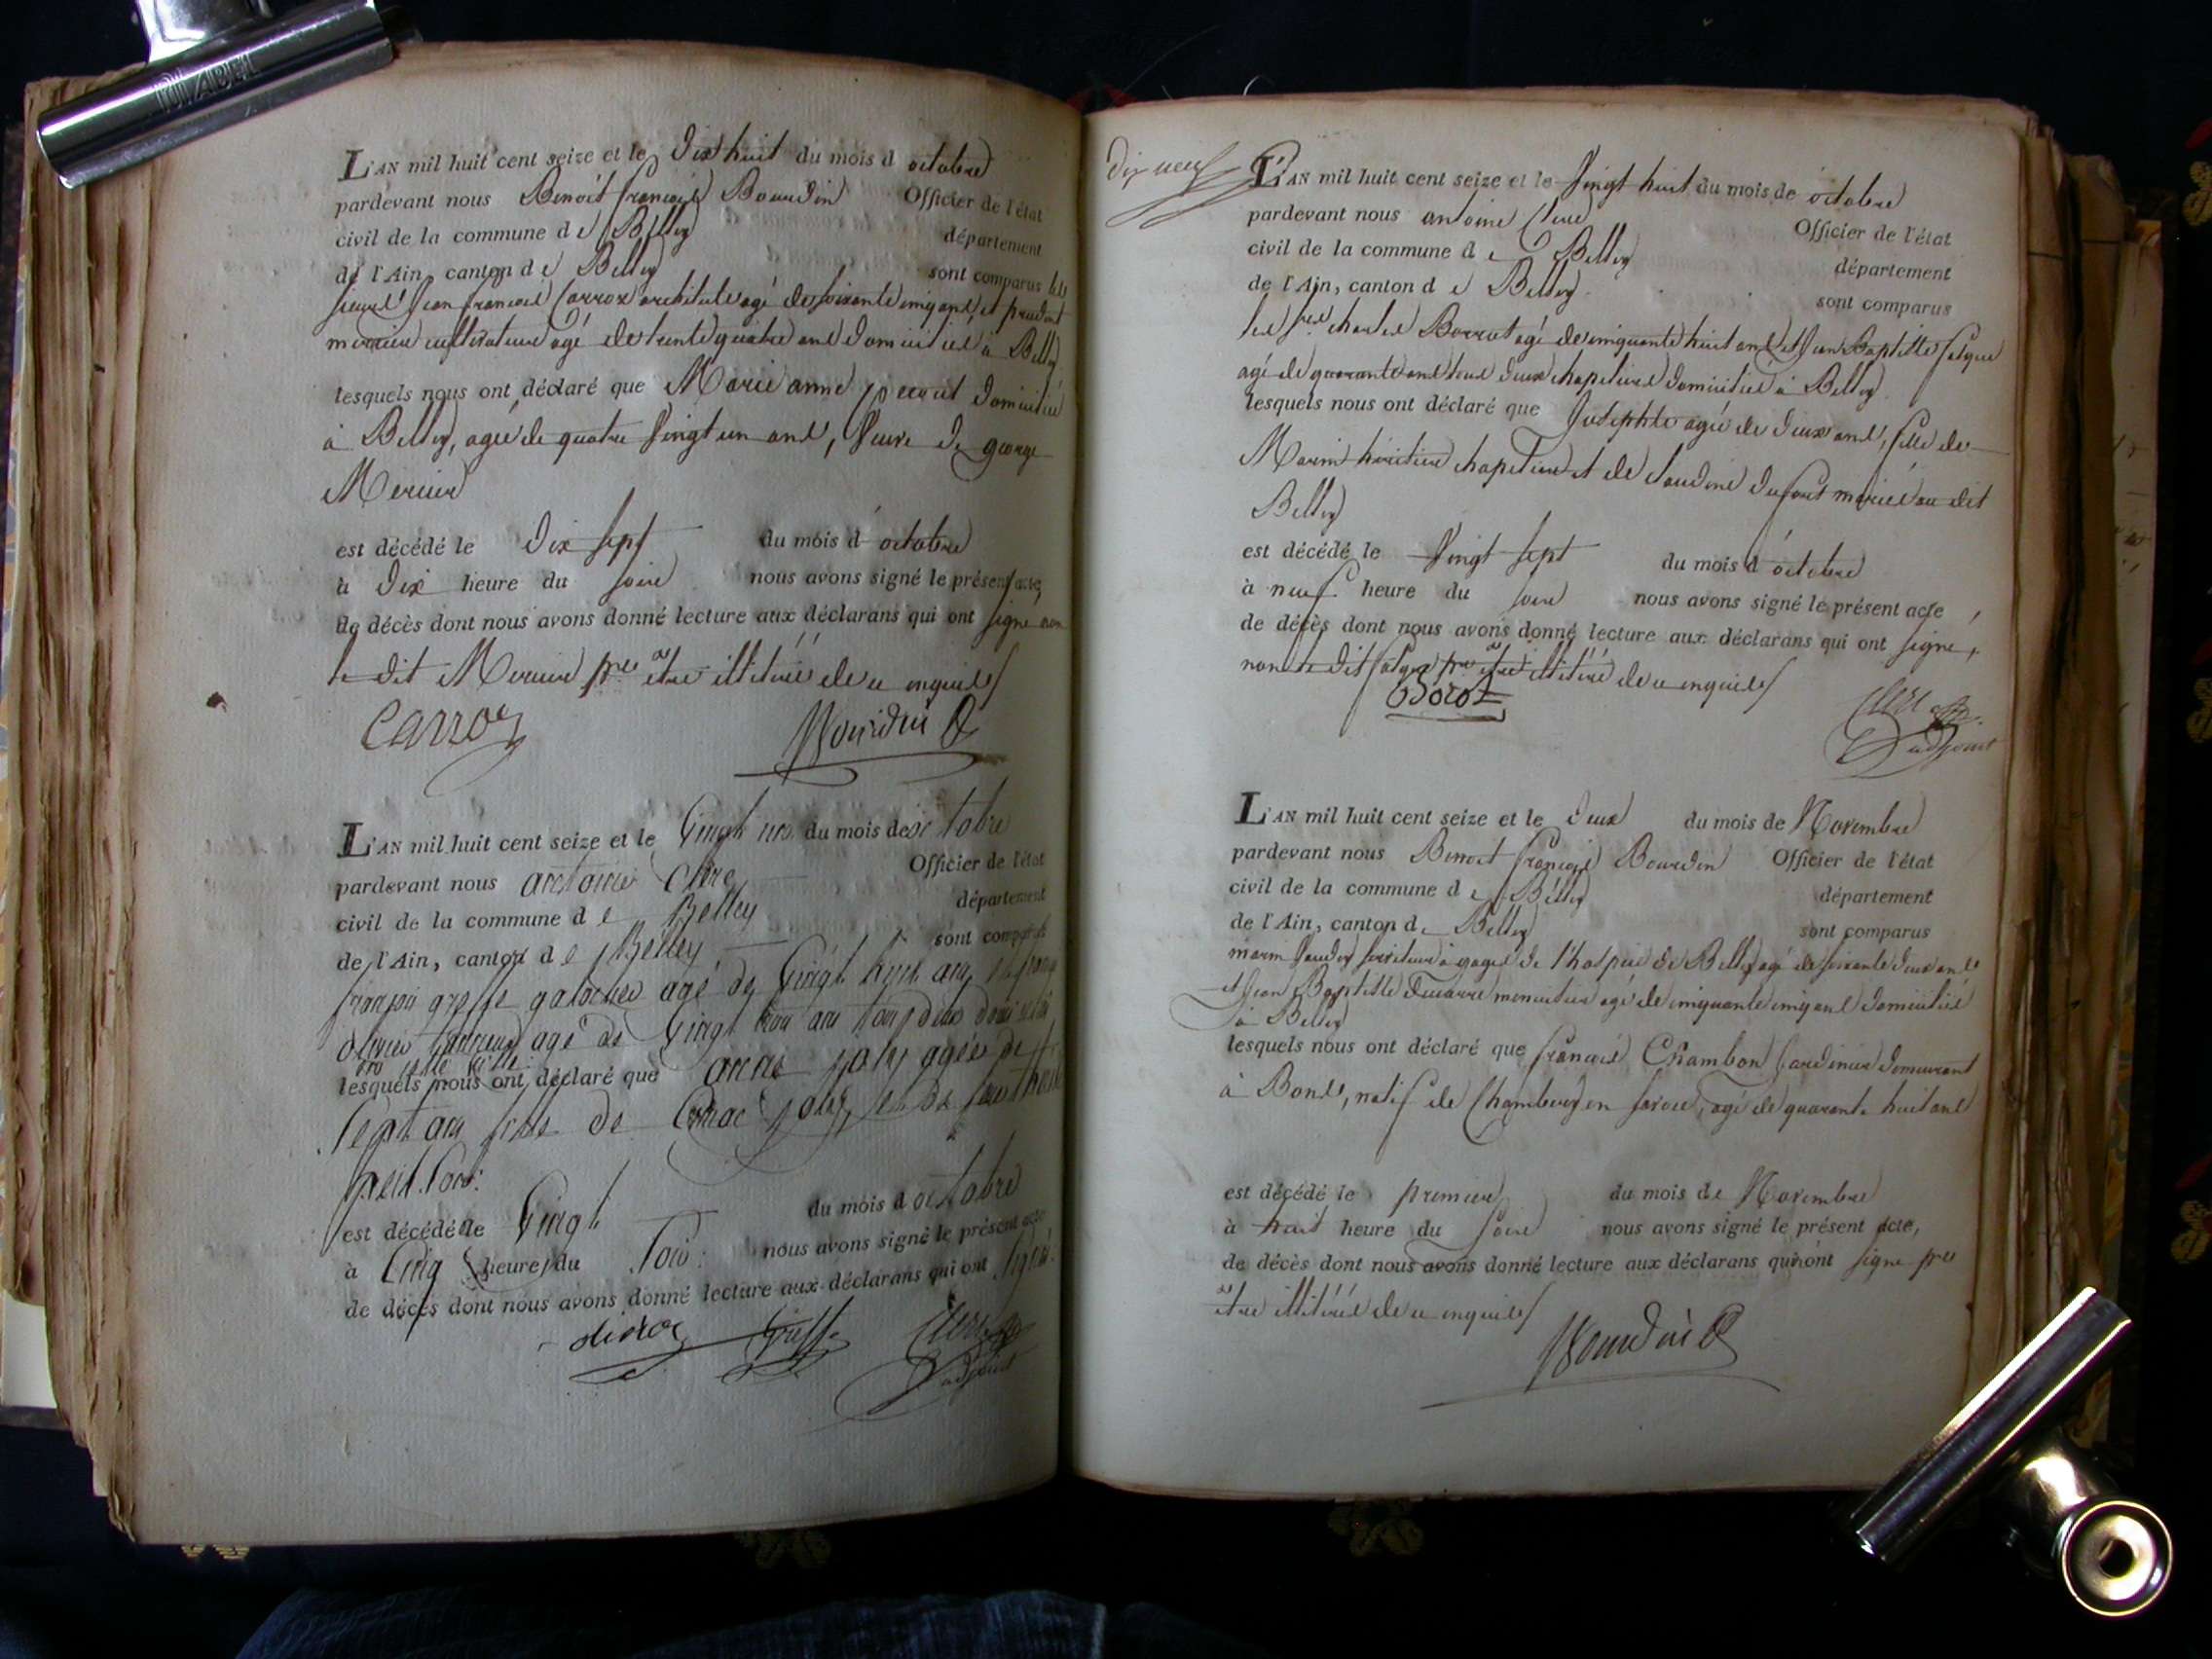 L'AN mil huit cent seize et le dix huit du mois d octobre
pardevant nous Benoit françois Bourdin Officier de l'état
civil de la commune d e Belley département
de l'Ain, canton d e Belley sont comparus les
sieurs Jean françois Carroz architecte agé de soixante cinq ans, et prudent
mercier cultivateur agé de trente quatre ans domiciliés à Belley
lesquels nous ont déclaré que Marie anne domiciliée
à Belley, agée de quatre vingt un ans, veuve de george
Mercier
est décédé le dix sept du mois d octobre
à dix heure du soir nous avons signé le présent acte,
de décès dont nous avons donné lecture aux déclarans qui ont signé non
le dit Mercier pour être illitéré de ce enquis
Carroz Bourdin
L'AN mil huit cent seize et le vingt un du mois de octobre
pardevant nous antoine Clerc Officier de l'état
civil de la commune d e Belley département
de l'Ain, canton d e Belley sont comparus
françois greffe galochier agé de vingt huit ans
olivier agé de vingt trois ans tous deux
lesquels nous ont déclaré que anne joly agée de
sept ans fille de joly
est décédé le vingt du mois d octobre
à cinq heure du soir nous avons signé le présent acte
de décès dont nous avons donné lecture aux déclarans qui ont signé
Greffe Clerc
adjoint
dix neuf
L'AN mil huit cent seize et le vingt huit du mois de octobre
pardevant nous antoine Clerc Officier de l'état
civil de la commune d e Belley département
de l'Ain, canton d e Belley sont comparus
les srs charles Borrot agé de cinquante huit ans et Jean Baptiste falque
agé de quarante ans tous deux chapeliers domiciliés à Belley
lesquels nous ont déclaré que Josephte agée de deux ans, fille de
Marin héritier chapelier et de claudine dufour mariés au dit
Belley
est décédé le vingt sept du mois d octobre
à neuf heure du soir nous avons signé le présent acte
de décès dont nous avons donné lecture aux déclarans qui ont signé,
non le dit falque pour être illitéré de ce enquis
Borot Clerc
adjoint
L'AN mil huit cent seize et le deux du mois de Novembre
pardevant nous Benoit françois Bourdin Officier de l'état
civil de la commune d e Belley département
de l'Ain, canton d e Belley sont comparus
marin serviteur à gages de l'hospice de Belley agé de soixante deux ans
et Jean Baptiste Ducarre menuisier agé de cinquante cinq ans domiciliés
à Belley
lesquels nous ont déclaré que françois Chambon Jardinier demeurant
à Bons, natif de Chambery en savoie, agé de quarante huit ans
est décédé le premier du mois de Novembre
à huit heure du soir nous avons signé le présent acte,
de décès dont nous avons donné lecture aux déclarans qui n'ont signé pour
être illitérés de ce enquis
Bourdin